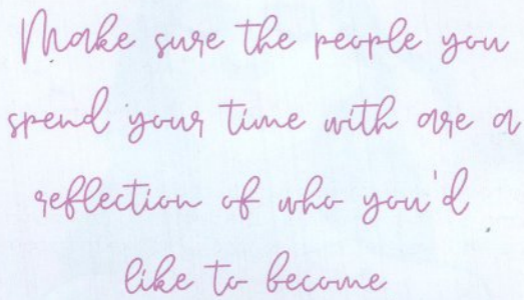 Make sure the people you
spend your time with are a
reflection of who you'd
like to become